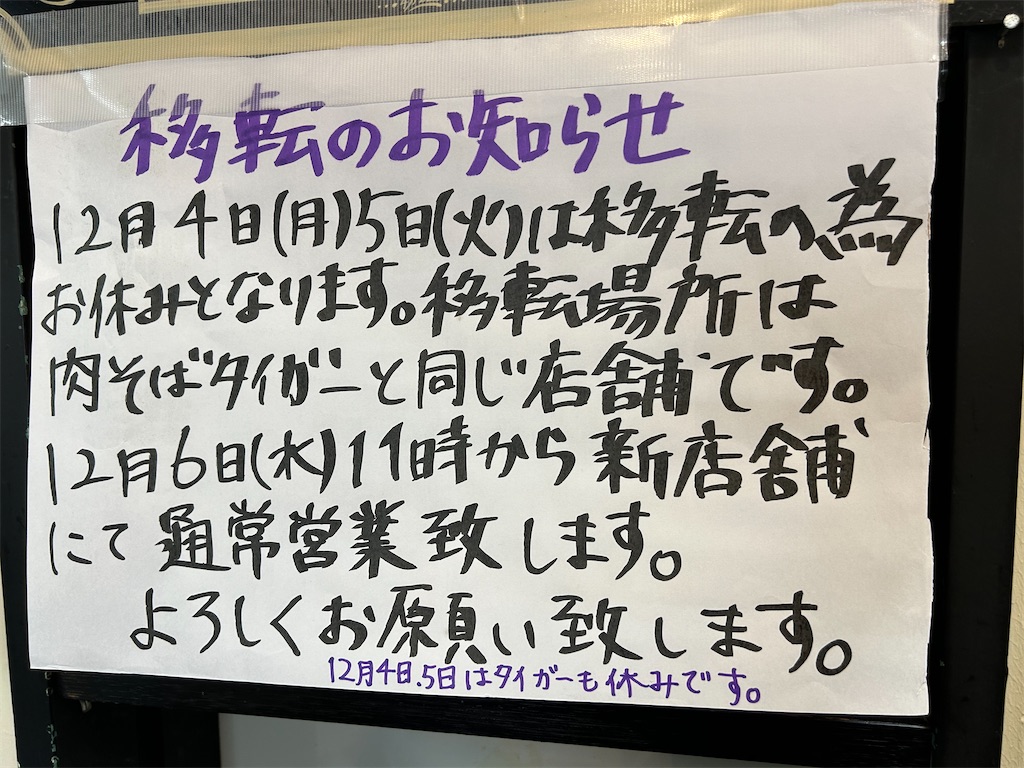 移転のお知らせ
12月4日(月)5日(火)は移転の為
お休みとなります。移転場所は
肉そばタイガーと同じ店舗です。
12月6日(水)11時から新店舗
にて通常営業致します。
よろしくお願い致します。
12月4日.5日はタイガーも休みです。